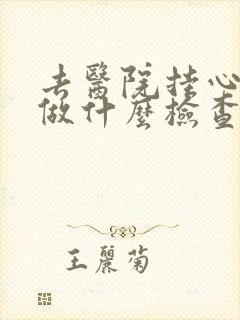 去醫院掛心
做什麼檢查
王麗菊